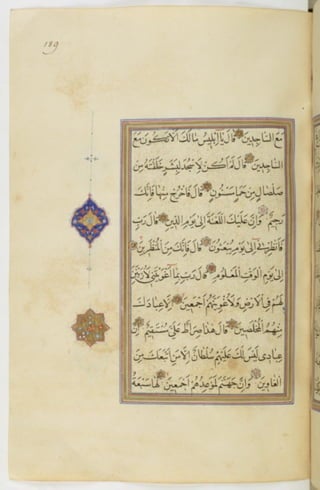 189
مَعَ السَّاجِدِينَ قَالَ يَا اِبْلِيسُ مَالَكَ اَلَّا تَكُونَ مَعَ
السَّاجِدِينَ قَالَ لَمْ اَكُنْ لِاَسْجُدَ لِبَشَرٍ خَلَقْتَهُ مِنْ
صَلْصَالٍ مِنْ حَمَاٍ مَسْنُونٍ قَالَ فَاخْرُجْ مِنْهَا فَاِنَّكَ
رَجِيمٌ وَاِنَّ عَلَيْكَ اللَّعْنَةَ اِلَى يَوْمِ الدِّينِ قَالَ رَبِّ
فَاَنْظِرْنِي اِلَى يَوْمِ يُبْعَثُونَ قَالَ فَاِنَّكَ مِنَ الْمُنْظَرِينَ
اِلَى يَوْمِ الْوَقْتِ الْمَعْلُومِ قَالَ رَبِّ بِمَا اَغْوَيْتَنِي لَاُزَيِّنَنَّ
لَهُمْ فِي الْاَرْضِ وَلَاُغْوِيَنَّهُمْ اَجْمَعِينَ اِلَّا عِبَادَكَ
مِنْهُمُ الْمُخْلَصِينَ قَالَ هَذَا صِرَاطٌ عَلَيَّ مُسْتَقِيمٌ اِنَّ
عِبَادِي لَيْسَ لَكَ عَلَيْهِمْ سُلْطَانٌ اِلَّا مَنِ اتَّبَعَكَ مِنَ
الْغَاوِينَ وَاِنَّ جَهَنَّمَ لَمَوْعِدُهُمْ اَجْمَعِينَ لَهَا سَبْعَةُ